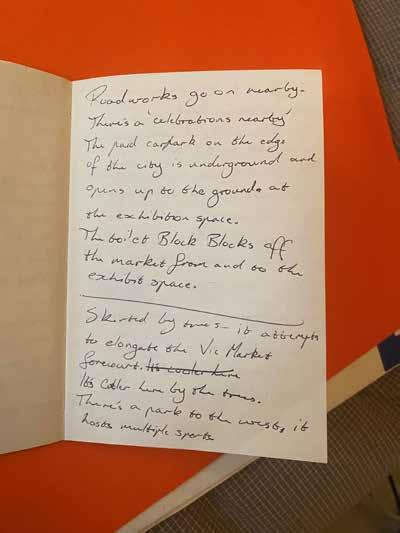 Roadworks go on nearby.
There's a 'celebrations nearby'
The paid carpark on the edge
of the city is underground and
opens up to the grounds at
the exhibition space.
The toilet Block Blocks off
the market from and to the
exhibit space.
Skirted by trees - it attempts
to elongate the Vic Market
forecourt. It's cooler here
It's Cooler here by the trees.
There's a park to the west, it
hosts multiple sports